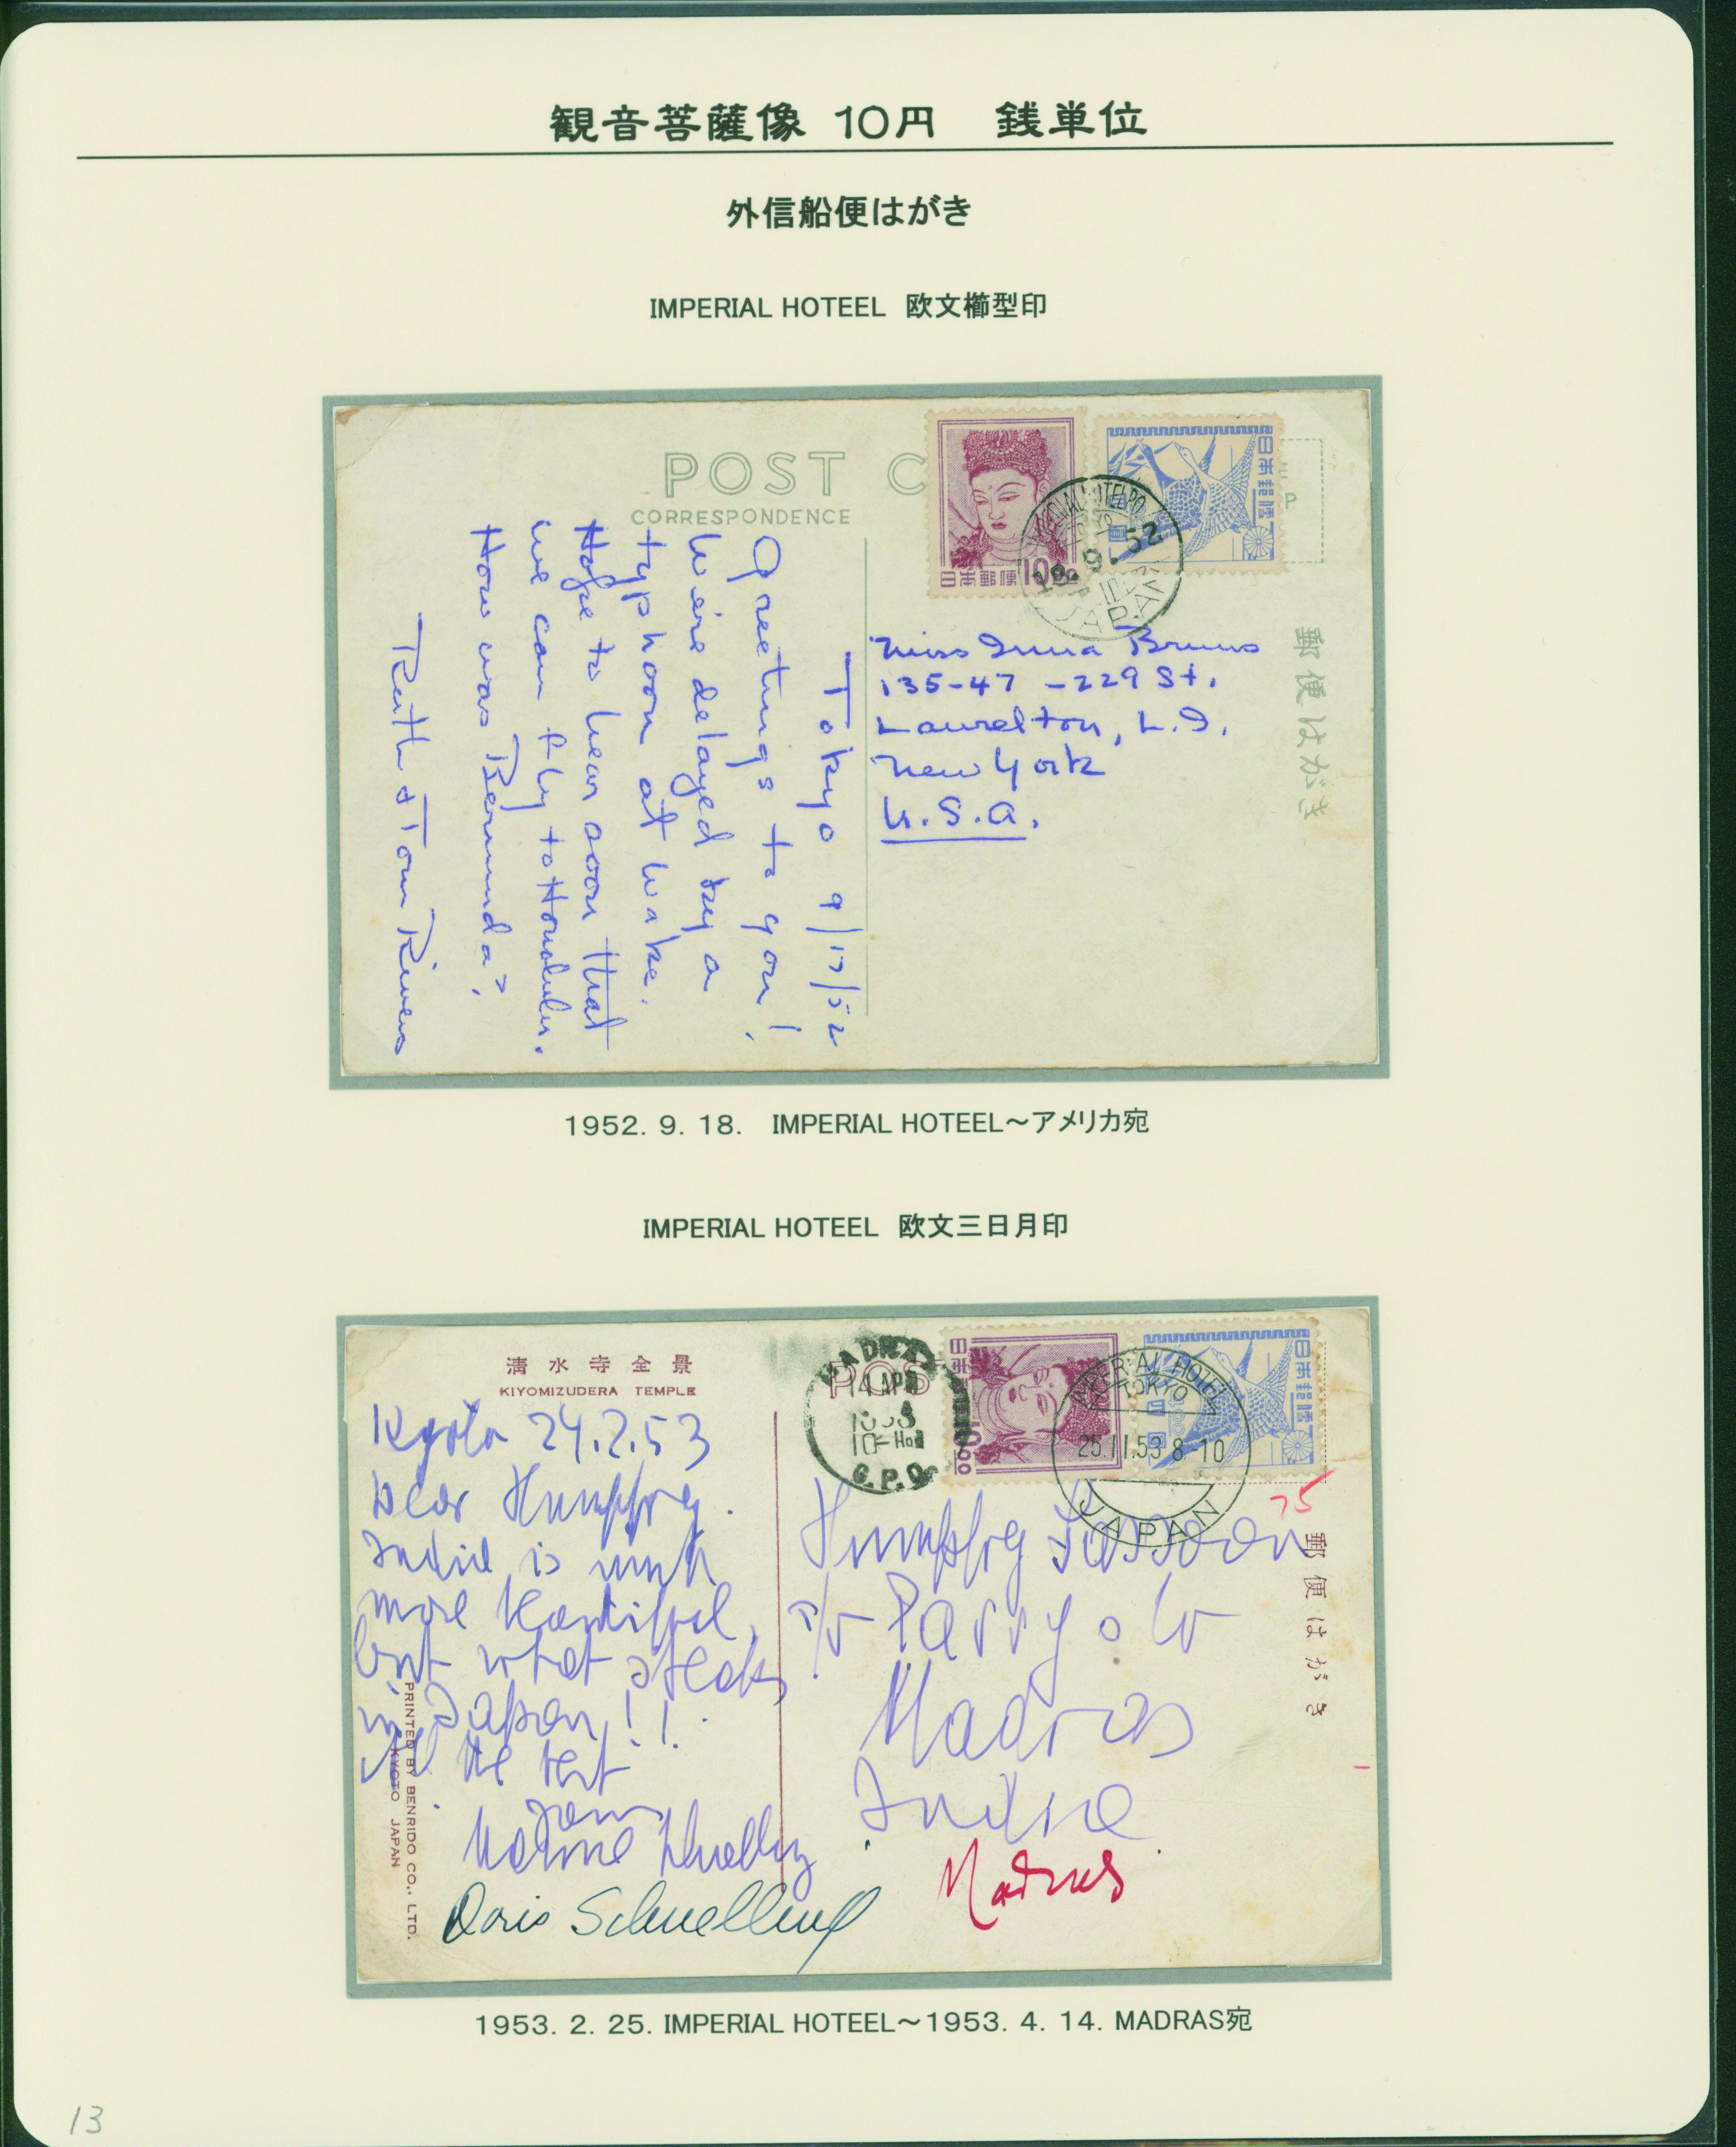 観音菩薩像 10円 銭単位
外信船便はがき
IMPERIAL HOTEEL 欧文櫛型印
POST C
CORRESPONDENCE
日本郵便 10
日本郵便
IMPERIAL HOTEL PO
18. 9. 52
JAPAN
P
郵便はがき
Tokyo 9/17/52
Greetings to you!
Weire delayed by a
typhoon at Wake.
Hope to hear soon that
we can fly to Honolulu.
How was Bermuda?
Ruth & Tom Rivers
Miss Irma Bruns
135-47 -229 St.
Laurelton, L.I.
New York
U.S.A.
1952. 9. 18. IMPERIAL HOTEEL～アメリカ宛
IMPERIAL HOTEEL 欧文三日月印
清水寺全景
KIYOMIZUDERA TEMPLE
POS
MADRAS
14 APR
1953
G.P.O.
日本郵便
IMPERIAL HOTEL
TOKYO
25.II.53 8-10
JAPAN
75
郵便はがき
Kyoto 24.2.53
Dear Humphrey.
India is much
more beautiful,
but what steaks
in Japan!!
All the best
Doris Schnelling
PRINTED BY BENRIDO CO., LTD.
KYOTO JAPAN
Humphrey Sassoon
c/o Parry & Co
Madras
India
Madras
1953. 2. 25. IMPERIAL HOTEEL～1953. 4. 14. MADRAS宛
13